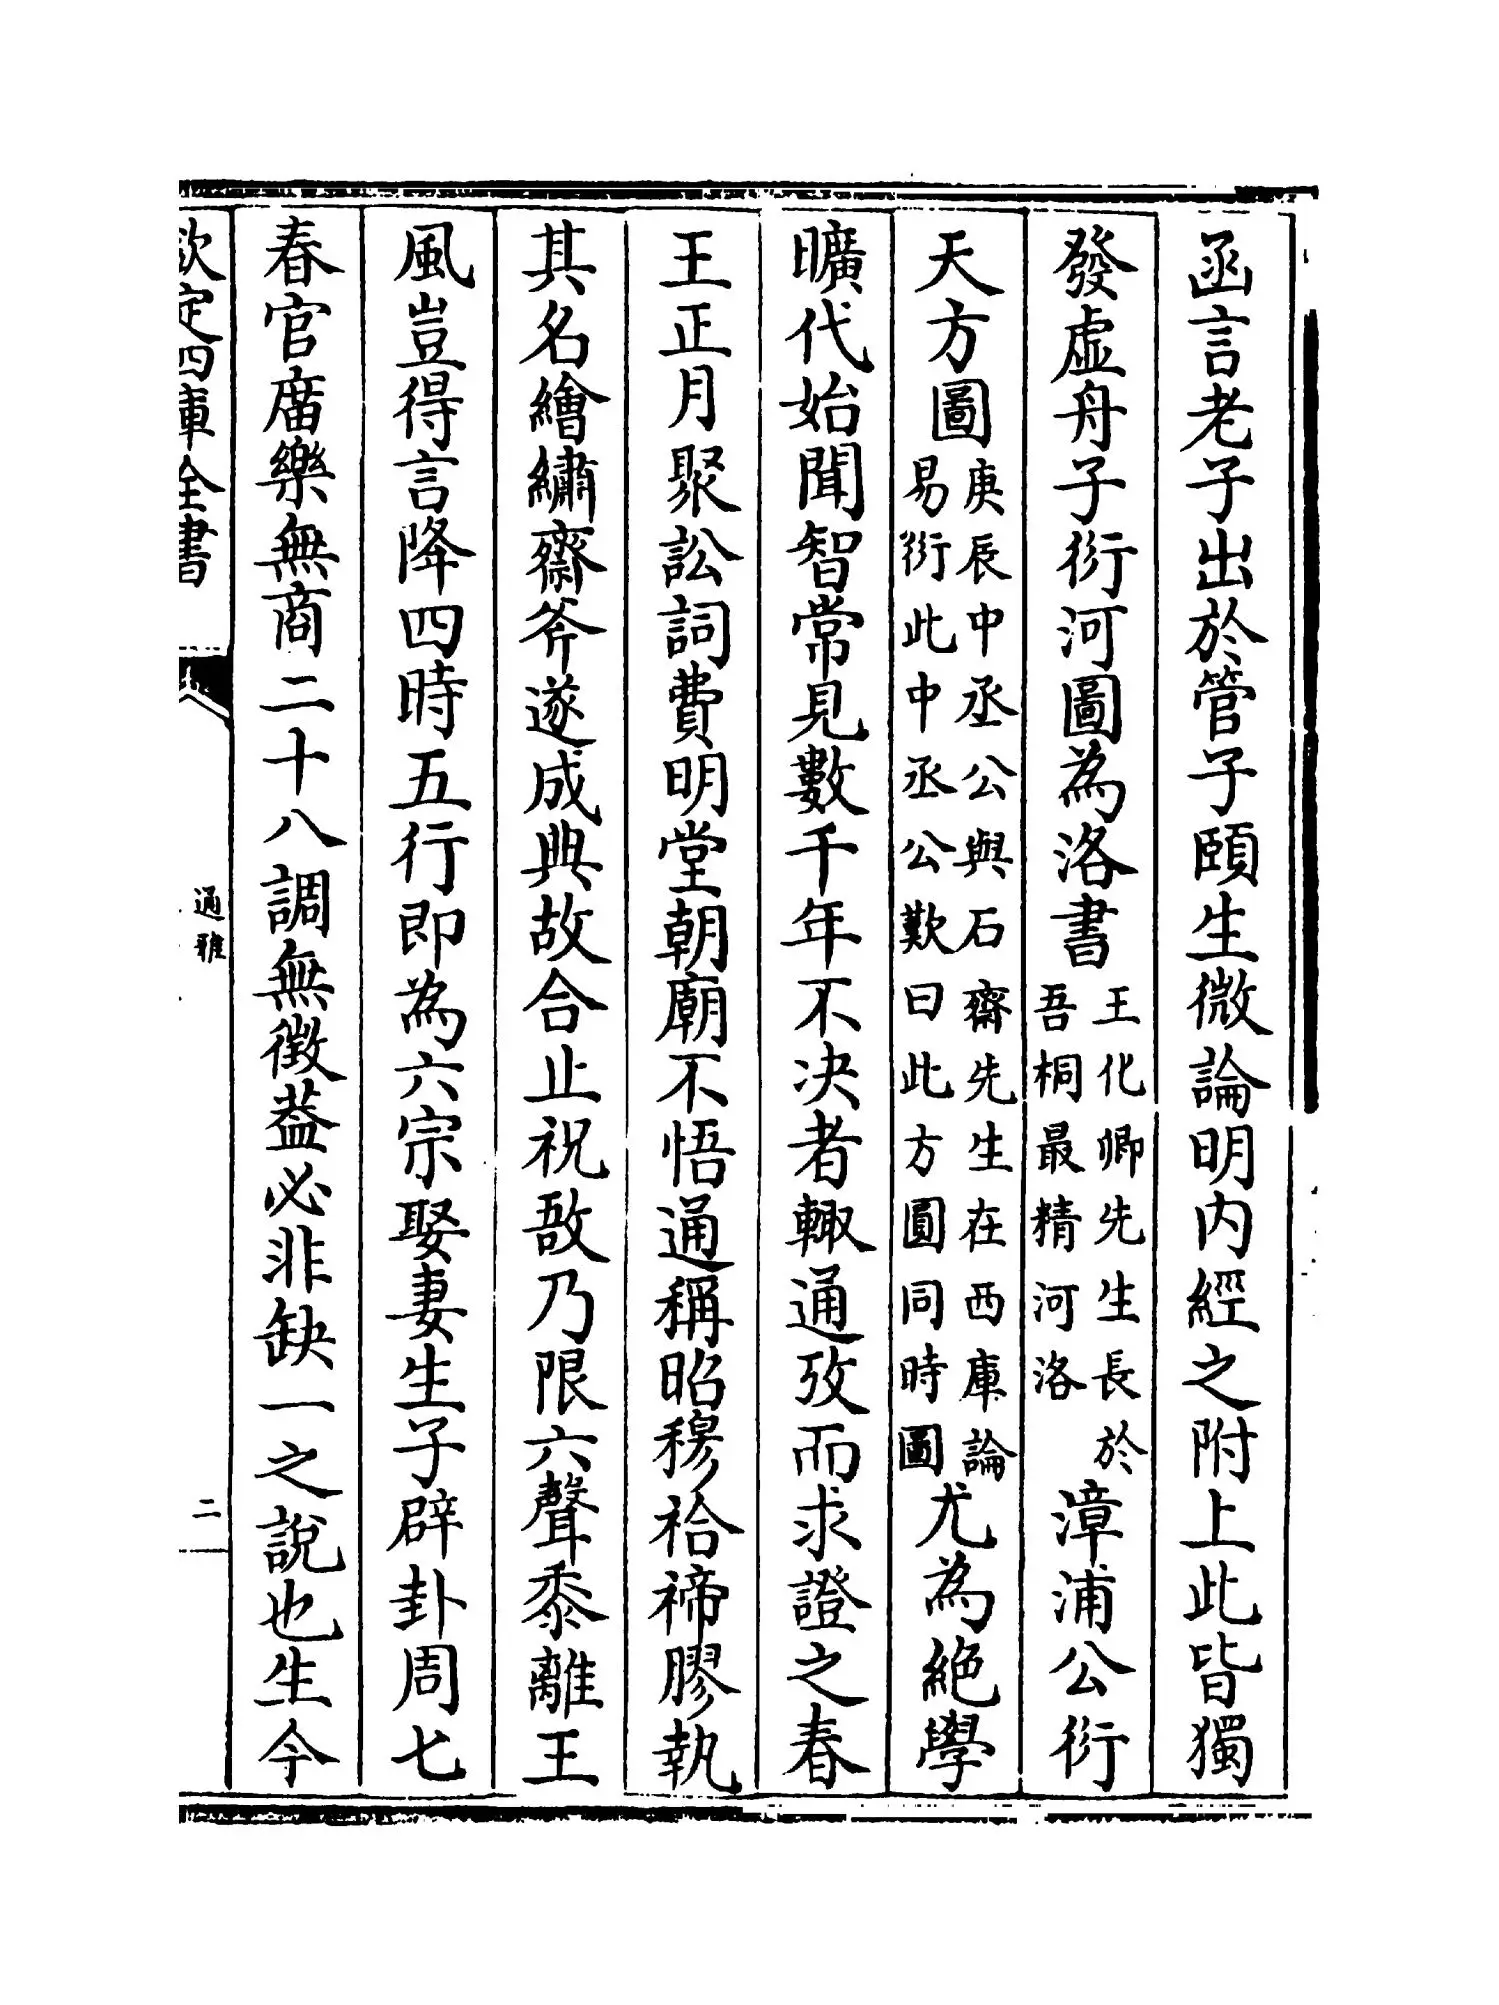 函言老子出於管子頤生微論明内經之附上此皆獨
發虚舟子衍河圖為洛書王化卿先生長於吾桐最精河洛漳浦公衍
天方圖庚辰中丞公與石齋先生在西庫論易衍此中丞公歎曰此方圓同時圖尤為絶學
曠代始聞智常見數千年不決者輙通攷而求證之春
王正月聚訟詞費明堂朝廟不悟通稱昭穆祫禘膠執
其名繪繡齋斧遂成典故合止祝敔乃限六聲黍離王
風豈得言降四時五行即為六宗娶妻生子辟卦周七
春官廣樂無商二十八調無徵葢必非缺一之説也生今
欽定四庫全書
通雅
二